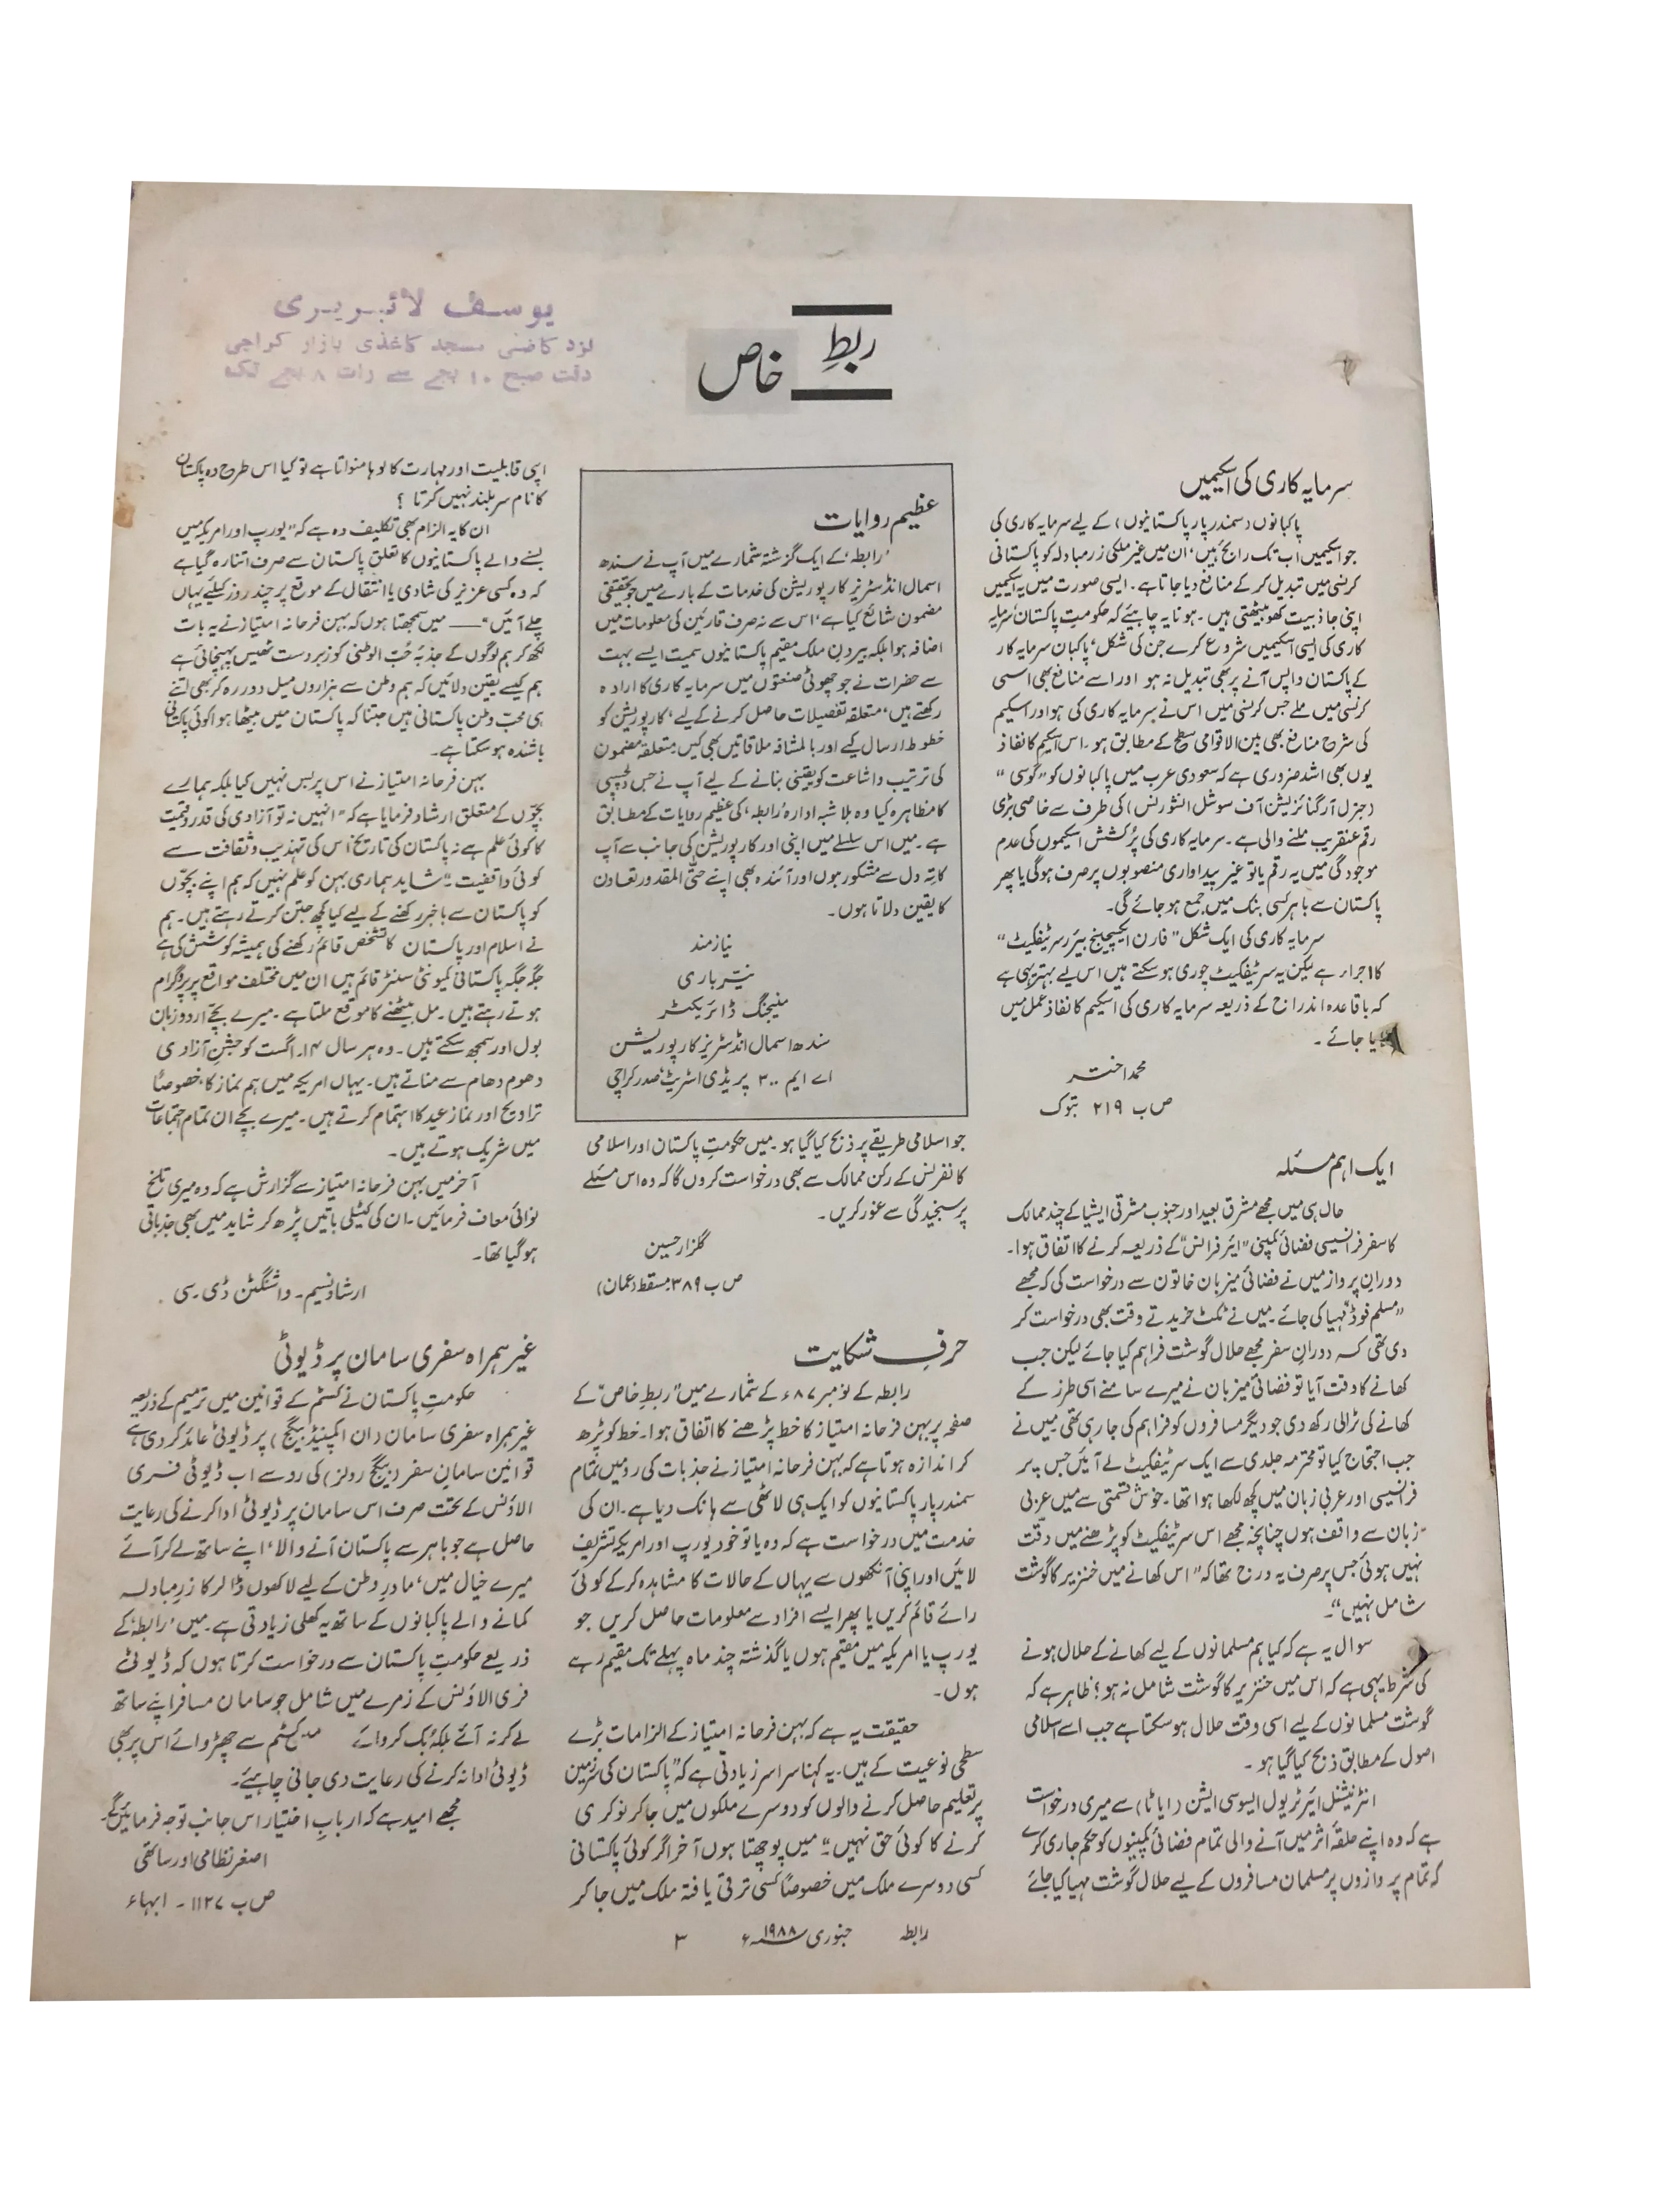 یوسف لائبریری
نزد کاضی مسجد کاغذی بازار کراچی
وقت صبح ۱۰ بجے سے رات ۸ بجے تک
ربطِ خاص
سرمایہ کاری کی اسکیمیں
پاکبانوں (سمندر پار پاکستانیوں) کے لیے سرمایہ کاری کی
جو اسکیمیں اب تک رائج ہیں، ان میں غیر ملکی زرمبادلہ کو پاکستانی
کرنسی میں تبدیل کر کے منافع دیا جاتا ہے۔ ایسی صورت میں یہ اسکیمیں
اپنی جاذبیت کھو بیٹھتی ہیں۔ ہونا یہ چاہیئے کہ حکومتِ پاکستان، سرمایہ
کاری کی ایسی اسکیمیں شروع کرے جن کی شکل، پاکبان سرمایہ کار
کے پاکستان واپس آنے پر بھی تبدیل نہ ہو اور اسے منافع بھی اسی
کرنسی میں ملے جس کرنسی میں اس نے سرمایہ کاری کی ہو اور اسکیم
کی شرح منافع بھی بین الاقوامی سطح کے مطابق ہو۔ اس اسکیم کا نفاذ
یوں بھی اشد ضروری ہے کہ سعودی عرب میں پاکبانوں کو "گوسی"
(جنرل آرگنائزیشن آف سوشل انشورنس) کی طرف سے خاصی بڑی
رقم عنقریب ملنے والی ہے۔ سرمایہ کاری کی پُرکشش اسکیموں کی عدم
موجودگی میں یہ رقم یا تو غیر پیداواری منصوبوں پر صرف ہوگی یا پھر
پاکستان سے باہر کسی بنک میں جمع ہو جائے گی۔
سرمایہ کاری کی ایک شکل "فارن ایکسچینج بیئرر سرٹیفکیٹ"
کا اجراء ہے لیکن یہ سرٹیفکیٹ چوری ہو سکتے ہیں اس لیے بہتر یہی ہے
کہ باقاعدہ اندراج کے ذریعہ سرمایہ کاری کی اسکیم کا نفاذ عمل میں
یا جائے۔
محمد اختر
ص ب ۲۱۹ تبوک
ایک اہم مسئلہ
حال ہی میں مجھے مشرق بعید اور جنوب مشرقی ایشیا کے چند ممالک
کا سفر فرانسیسی فضائی کمپنی "ایئر فرانس" کے ذریعہ کرنے کا اتفاق ہوا۔
دورانِ پرواز میں نے فضائی میزبان خاتون سے درخواست کی کہ مجھے
"مسلم فوڈ" مہیا کی جائے۔ میں نے ٹکٹ خریدتے وقت بھی درخواست کر
دی تھی کہ دورانِ سفر مجھے حلال گوشت فراہم کیا جائے لیکن جب
کھانے کا وقت آیا تو فضائی میزبان نے میرے سامنے اسی طرز کے
کھانے کی ٹرالی رکھ دی جو دیگر مسافروں کو فراہم کی جا رہی تھی۔ میں نے
جب احتجاج کیا تو محترمہ جلدی سے ایک سرٹیفکیٹ لے آئیں جس پر
فرانسیسی اور عربی زبان میں کچھ لکھا ہوا تھا۔ خوش قسمتی سے میں عربی
زبان سے واقف ہوں چنانچہ مجھے اس سرٹیفکیٹ کو پڑھنے میں دقّت
نہیں ہوئی جس پر صرف یہ درج تھا کہ "اس کھانے میں خنزیر کا گوشت
شامل نہیں"۔
سوال یہ ہے کہ کیا ہم مسلمانوں کے لیے کھانے کے حلال ہونے
کی شرط یہی ہے کہ اس میں خنزیر کا گوشت شامل نہ ہو؟ ظاہر ہے کہ
گوشت مسلمانوں کے لیے اسی وقت حلال ہو سکتا ہے جب اسے اسلامی
اصول کے مطابق ذبح کیا گیا ہو۔
انٹرنیشنل ایئر ٹریول ایسوسی ایشن (ایاٹا) سے میری درخواست
ہے کہ وہ اپنے حلقۂ اثر میں آنے والی تمام فضائی کمپنیوں کو حکم جاری کرے
کہ تمام پروازوں پر مسلمان مسافروں کے لیے حلال گوشت مہیا کیا جائے
عظیم روایات
'رابطہ' کے ایک گزشتہ شمارے میں آپ نے سندھ
اسمال انڈسٹریز کارپوریشن کی خدمات کے بارے میں جو تحقیقی
مضمون شائع کیا ہے، اس سے نہ صرف قارئین کی معلومات میں
اضافہ ہوا بلکہ بیرونِ ملک مقیم پاکستانیوں سمیت ایسے بہت
سے حضرات نے جو چھوٹی صنعتوں میں سرمایہ کاری کا ارادہ
رکھتے ہیں، متعلقہ تفصیلات حاصل کرنے کے لیے، کارپوریشن کو
خطوط ارسال کیے اور بالمشافہ ملاقاتیں بھی کیں۔ متعلقہ مضمون
کی ترتیب و اشاعت کو یقینی بنانے کے لیے آپ نے جس دلچسپی
کا مظاہرہ کیا وہ بلاشبہ ادارہ 'رابطہ' کی عظیم روایات کے مطابق
ہے۔ میں اس سلسلے میں اپنی اور کارپوریشن کی جانب سے آپ
کا تہِ دل سے مشکور ہوں اور آئندہ بھی اپنے حتّی المقدور تعاون
کا یقین دلاتا ہوں۔
نیازمند
نیّر باری
منیجنگ ڈائریکٹر
سندھ اسمال انڈسٹریز کارپوریشن
اے ایم ۳۰۰ پریڈی اسٹریٹ، صدر کراچی
جو اسلامی طریقے پر ذبح کیا گیا ہو۔ میں حکومتِ پاکستان اور اسلامی
کانفرنس کے رکن ممالک سے بھی درخواست کروں گا کہ وہ اس مسئلے
پر سنجیدگی سے غور کریں۔
گلزار حسین
ص ب ۳۸۹، مسقط (عمان)
حرفِ شکایت
رابطہ کے نومبر ۸۷ء کے شمارے میں "ربطِ خاص" کے
صفحہ پر بہن فرحانہ امتیاز کا خط پڑھنے کا اتفاق ہوا۔ خط کو پڑھ
کر اندازہ ہوتا ہے کہ بہن فرحانہ امتیاز نے جذبات کی رو میں تمام
سمندر پار پاکستانیوں کو ایک ہی لاٹھی سے ہانک دیا ہے۔ ان کی
خدمت میں درخواست ہے کہ وہ یا تو خود یورپ اور امریکہ تشریف
لائیں اور اپنی آنکھوں سے یہاں کے حالات کا مشاہدہ کر کے کوئی
رائے قائم کریں یا پھر ایسے افراد سے معلومات حاصل کریں جو
یورپ یا امریکہ میں مقیم ہوں یا گذشتہ چند ماہ پہلے تک مقیم رہے
ہوں۔
حقیقت یہ ہے کہ بہن فرحانہ امتیاز کے الزامات بڑے
سطحی نوعیت کے ہیں۔ یہ کہنا سراسر زیادتی ہے کہ "پاکستان کی سرزمین
پر تعلیم حاصل کرنے والوں کو دوسرے ملکوں میں جا کر نوکری
کرنے کا کوئی حق نہیں"۔ میں پوچھتا ہوں آخر اگر کوئی پاکستانی
کسی دوسرے ملک میں خصوصاً کسی ترقی یافتہ ملک میں جا کر
اپنی قابلیت اور مہارت کا لوہا منواتا ہے تو کیا اس طرح وہ پاکستان
کا نام سربلند نہیں کرتا ؟
ان کا یہ الزام بھی تکلیف دہ ہے کہ "یورپ اور امریکہ میں
بسنے والے پاکستانیوں کا تعلق پاکستان سے صرف اتنا رہ گیا ہے
کہ وہ کسی عزیز کی شادی یا انتقال کے موقع پر چند روز کیلئے یہاں
چلے آئیں" — میں سمجھتا ہوں کہ بہن فرحانہ امتیاز نے یہ بات
لکھ کر ہم لوگوں کے جذبۂ حُبّ الوطنی کو زبردست ٹھیس پہنچائی ہے
ہم کیسے یقین دلائیں کہ ہم وطن سے ہزاروں میل دور رہ کر بھی اتنے
ہی محب وطن پاکستانی ہیں جتنا کہ پاکستان میں بیٹھا ہوا کوئی پاکستانی
باشندہ ہو سکتا ہے۔
بہن فرحانہ امتیاز نے اس پر بس نہیں کیا بلکہ ہمارے
بچّوں کے متعلق ارشاد فرمایا ہے کہ "انہیں نہ تو آزادی کی قدر و قیمت
کا کوئی علم ہے نہ پاکستان کی تاریخ اُس کی تہذیب و ثقافت سے
کوئی واقفیت"۔ شاید ہماری بہن کو علم نہیں کہ ہم اپنے بچّوں
کو پاکستان سے باخبر رکھنے کے لیے کیا کچھ جتن کرتے رہتے ہیں۔ ہم
نے اسلام اور پاکستان کا تشخص قائم رکھنے کی ہمیشہ کوشش کی ہے
جگہ جگہ پاکستانی کمیونٹی سنٹر قائم ہیں ان میں مختلف مواقع پر پروگرام
ہوتے رہتے ہیں۔ مل بیٹھنے کا موقع ملتا ہے۔ میرے بچّے اردو زبان
بول اور سمجھ سکتے ہیں۔ وہ ہر سال ۱۴۔ اگست کو جشنِ آزادی
دھوم دھام سے مناتے ہیں۔ یہاں امریکہ میں ہم نماز کا، خصوصاً
تراویح اور نماز عید کا اہتمام کرتے ہیں۔ میرے بچے ان تمام اجتماعات
میں شریک ہوتے ہیں۔
آخر میں بہن فرحانہ امتیاز سے گزارش ہے کہ وہ میری تلخ
نوائی معاف فرمائیں۔ ان کی کٹیلی باتیں پڑھ کر شاید میں بھی جذباتی
ہو گیا تھا۔
ارشاد نسیم۔ واشنگٹن ڈی۔سی۔
غیر ہمراہ سفری سامان پر ڈیوٹی
حکومتِ پاکستان نے کسٹم کے قوانین میں ترمیم کے ذریعہ
غیر ہمراہ سفری سامان (ان اکمپنیڈ بیگج) پر ڈیوٹی عائد کر دی ہے
قوانین سامانِ سفر (بیگج رولز) کی رو سے اب ڈیوٹی فری
الاؤنس کے تحت صرف اس سامان پر ڈیوٹی ادا کرنے کی رعایت
حاصل ہے جو باہر سے پاکستان آنے والا، اپنے ساتھ لے کر آئے
میرے خیال میں، مادرِ وطن کے لیے لاکھوں ڈالر کا زرِ مبادلہ
کمانے والے پاکبانوں کے ساتھ یہ کھلی زیادتی ہے۔ میں 'رابطہ' کے
ذریعے حکومتِ پاکستان سے درخواست کرتا ہوں کہ ڈیوٹی
فری الاؤنس کے زمرے میں شامل جو سامان مسافر اپنے ساتھ
لے کر نہ آئے بلکہ بُک کروائے کسٹم سے چھڑوائے اس پر بھی
ڈیوٹی ادا نہ کرنے کی رعایت دی جانی چاہیئے۔
مجھے امید ہے کہ اربابِ اختیار اس جانب توجہ فرمائیں گے۔
اصغر نظامی اور ساتھی
ص ب ۱۱۲۷ ۔ ابہاء
رابطہ جنوری ۱۹۸۸ء ۳